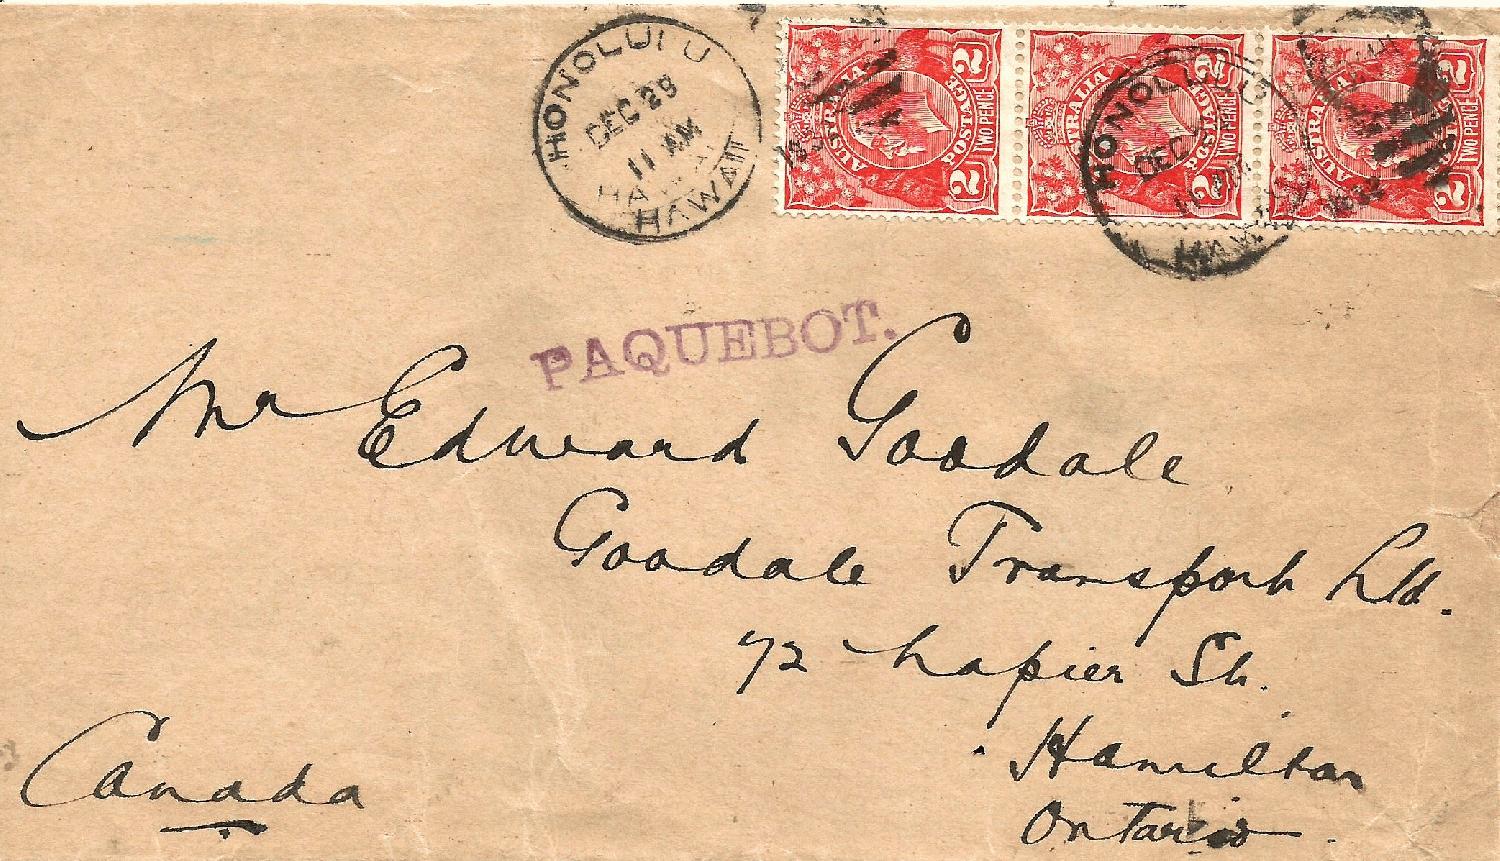 HONOLULU
DEC 28
11 AM
HAWAII
AUSTRALIA POSTAGE
2 TWO PENCE 2
AUSTRALIA POSTAGE
2 TWO PENCE 2
AUSTRALIA
2 TWO PENCE 2
HONOLULU
DEC
HAWAII
PAQUEBOT.
Mr Edward Goodale
Goodale Transport Ltd.
72 Napier St.
Hamilton
Ontario.
Canada